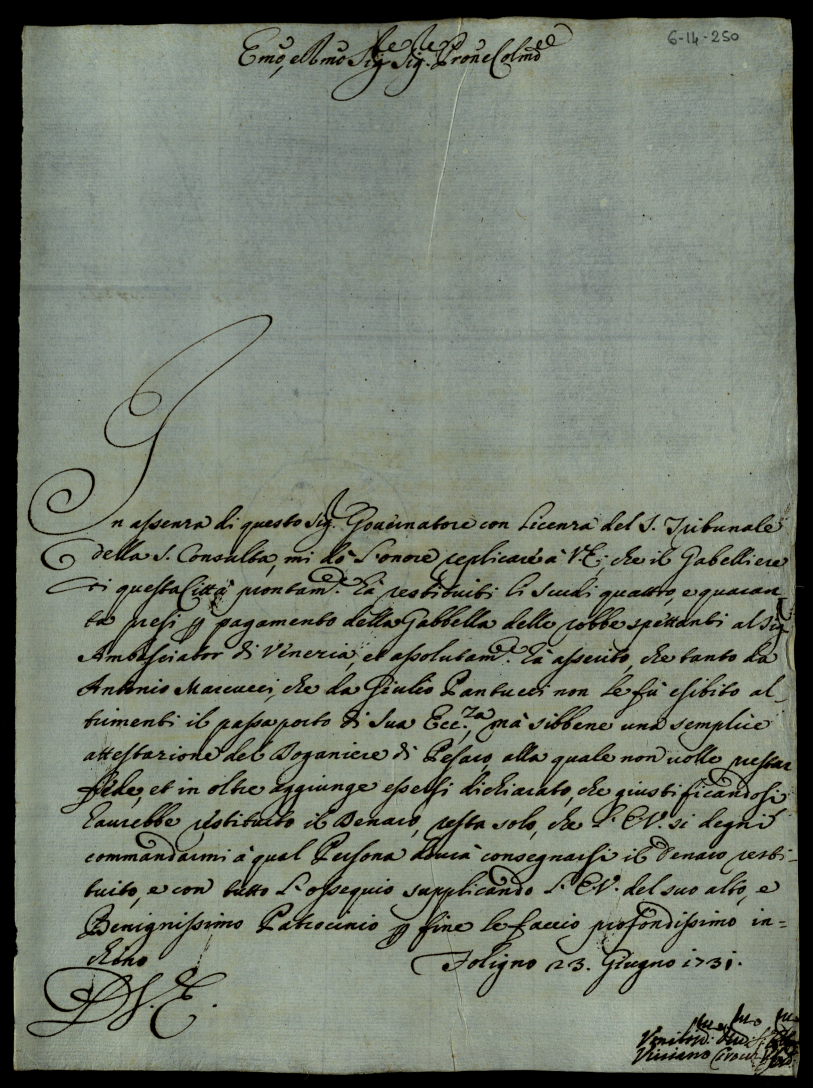 6-14-250
Emo, e Rmo Sig.re Sig.re Prone Colmo
In assenza di questo Sig.r Governatore con licenza del S. Tribunale
della S. Consulta, mi dò l'onore replicare à V.E., che il Gabelliere
di questa Città prontam.e hà restituiti li scudi quattro, e quaran
ta presi p pagamento della Gabbella delle robbe spettanti al Sig.r
Ambasciator di Venezia, et assolutam.e hà asserito, che tanto da
Antonio Marcucci, che da Giulio Pantucci non le fù esibito al-
trimenti il passaporto di Sua Ecc.za, mà sibbene una semplice
attestazione del Doganiere di Pesaro alla quale non volle prestar
fede, et in oltre aggiunge essersi dichiarato, che giustificandosi
haurebbe restituito il Denaro, resta solo, che l'E.V. si degni
commandarmi à qual Persona dovrà consegnarsi il denaro resti-
tuito, e con tutto l'ossequio supplicando l'E.V. del suo alto, e
Benignissimo Patrocinio p fine le faccio profondissimo in=
chino
Foligno 23. Giugno 1731.
D.V.E.